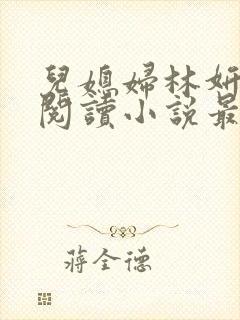 兒媳婦林妍
閱讀小說最
蔣全德